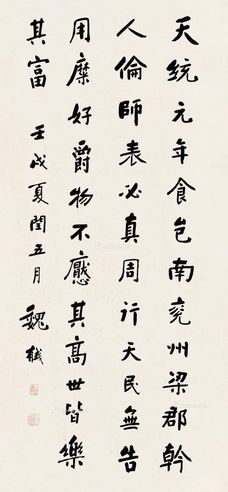 天統元年食邑南兖州梁郡幹
人倫師表必真周行天民無告
用糜好爵物不慼其高世皆樂
其富
壬戌夏閏五月
魏戫